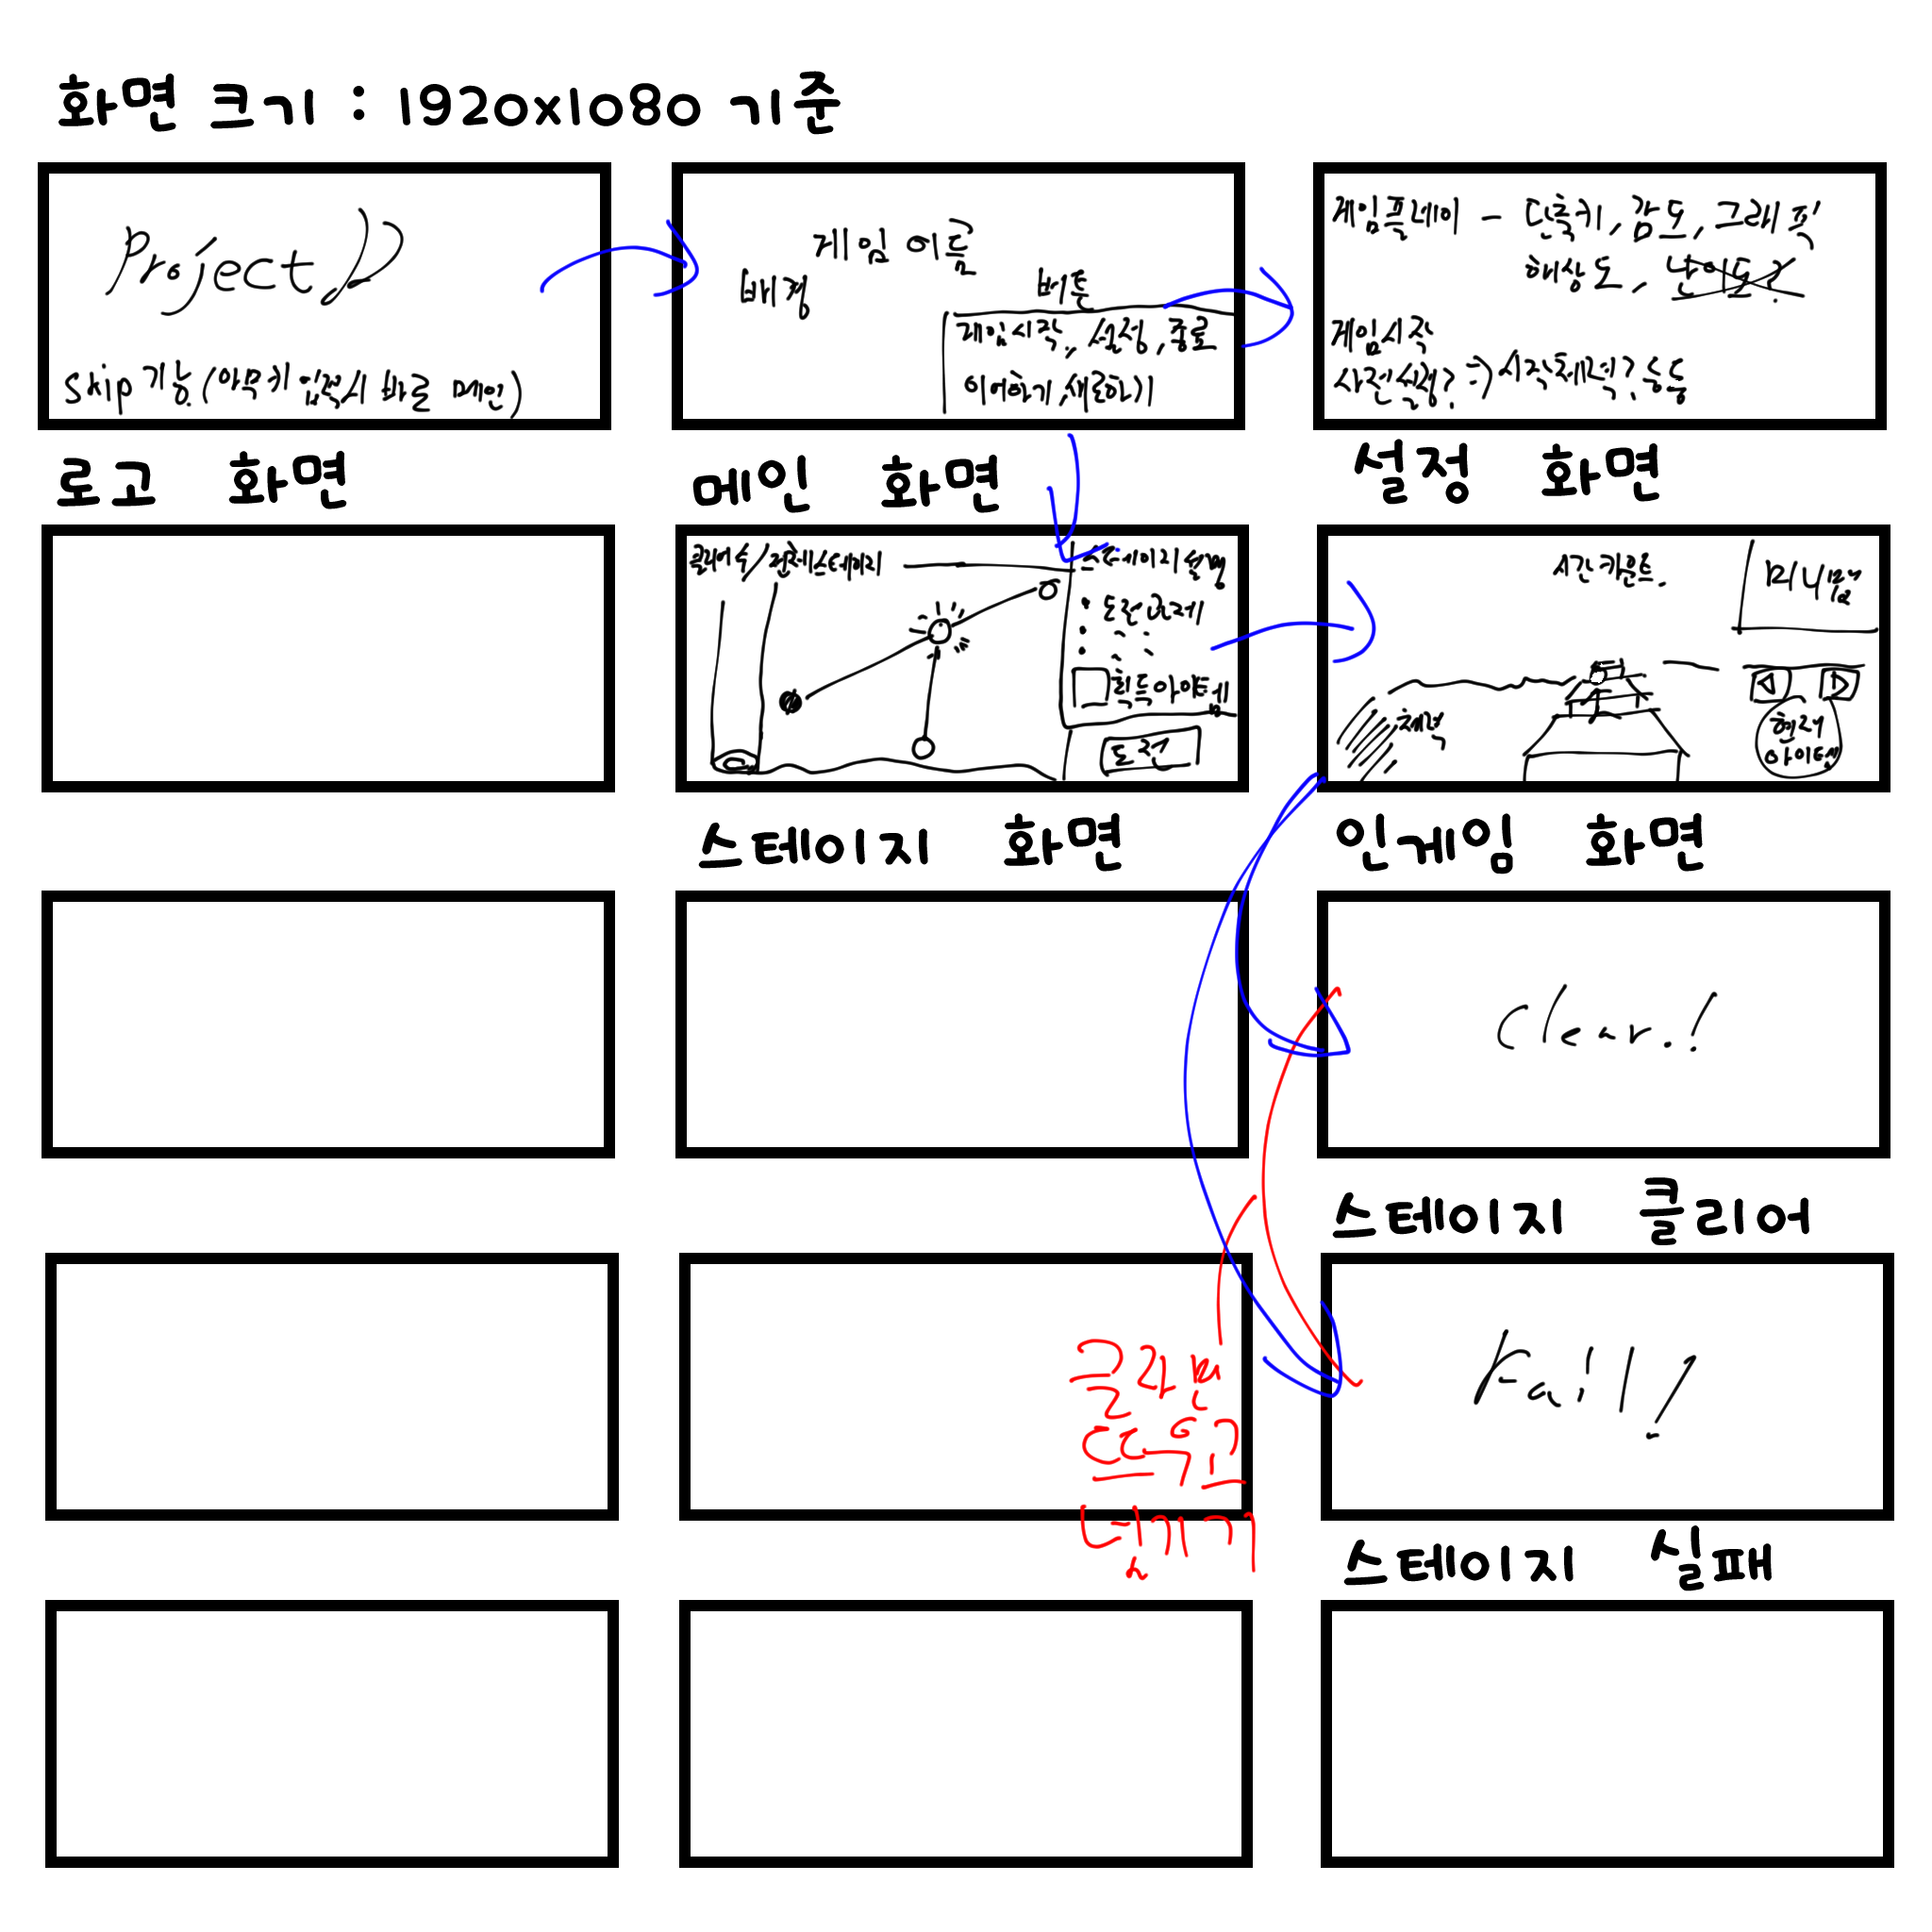 화면 크기 : 1920x1080 기준
Project D
Skip 기능 (아무키 입력시 바로 메인)
로고 화면
게임 이름
배경
버튼
게임시작, 설정, 종료
이어하기, 새로하기
메인 화면
게임플레이 - 단축키, 감도, 그래픽
해상도, 난이도?
게임시작
사전설정? => 시작체력? 등등
설정 화면
클리어 수 / 전체스테이지
스테이지 설명
도전과제
획득 아이템
도전
스테이지 화면
시간 카운트
미니맵
체력
현재
아이템
인게임 화면
Clear.!
스테이지 클리어
Fail!
스테이지 실패
골라면
띄우고
넘기기